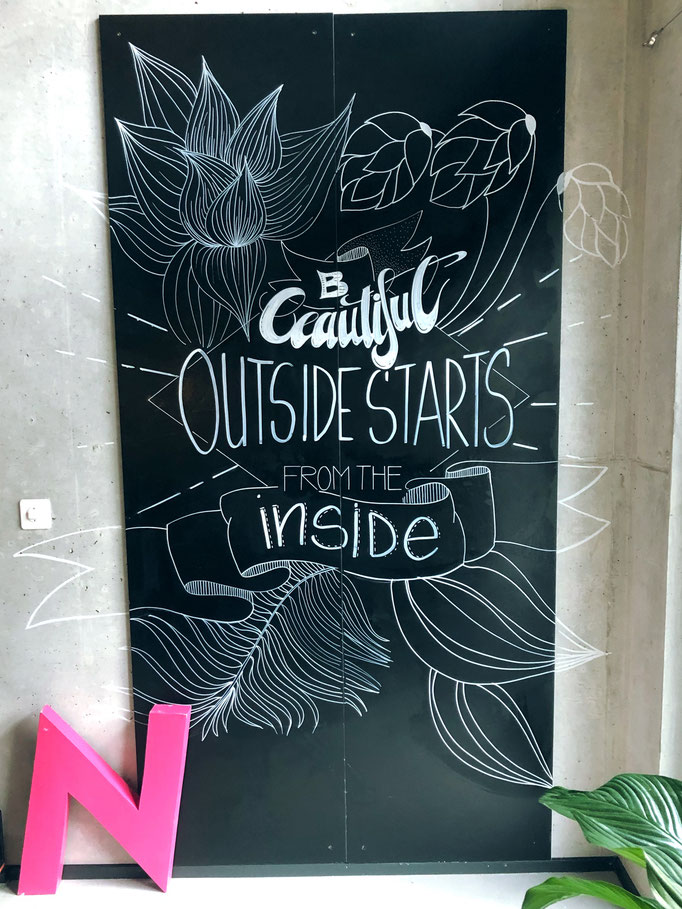 B
Beautiful
OUTSIDE STARTS
FROM THE
inside
N